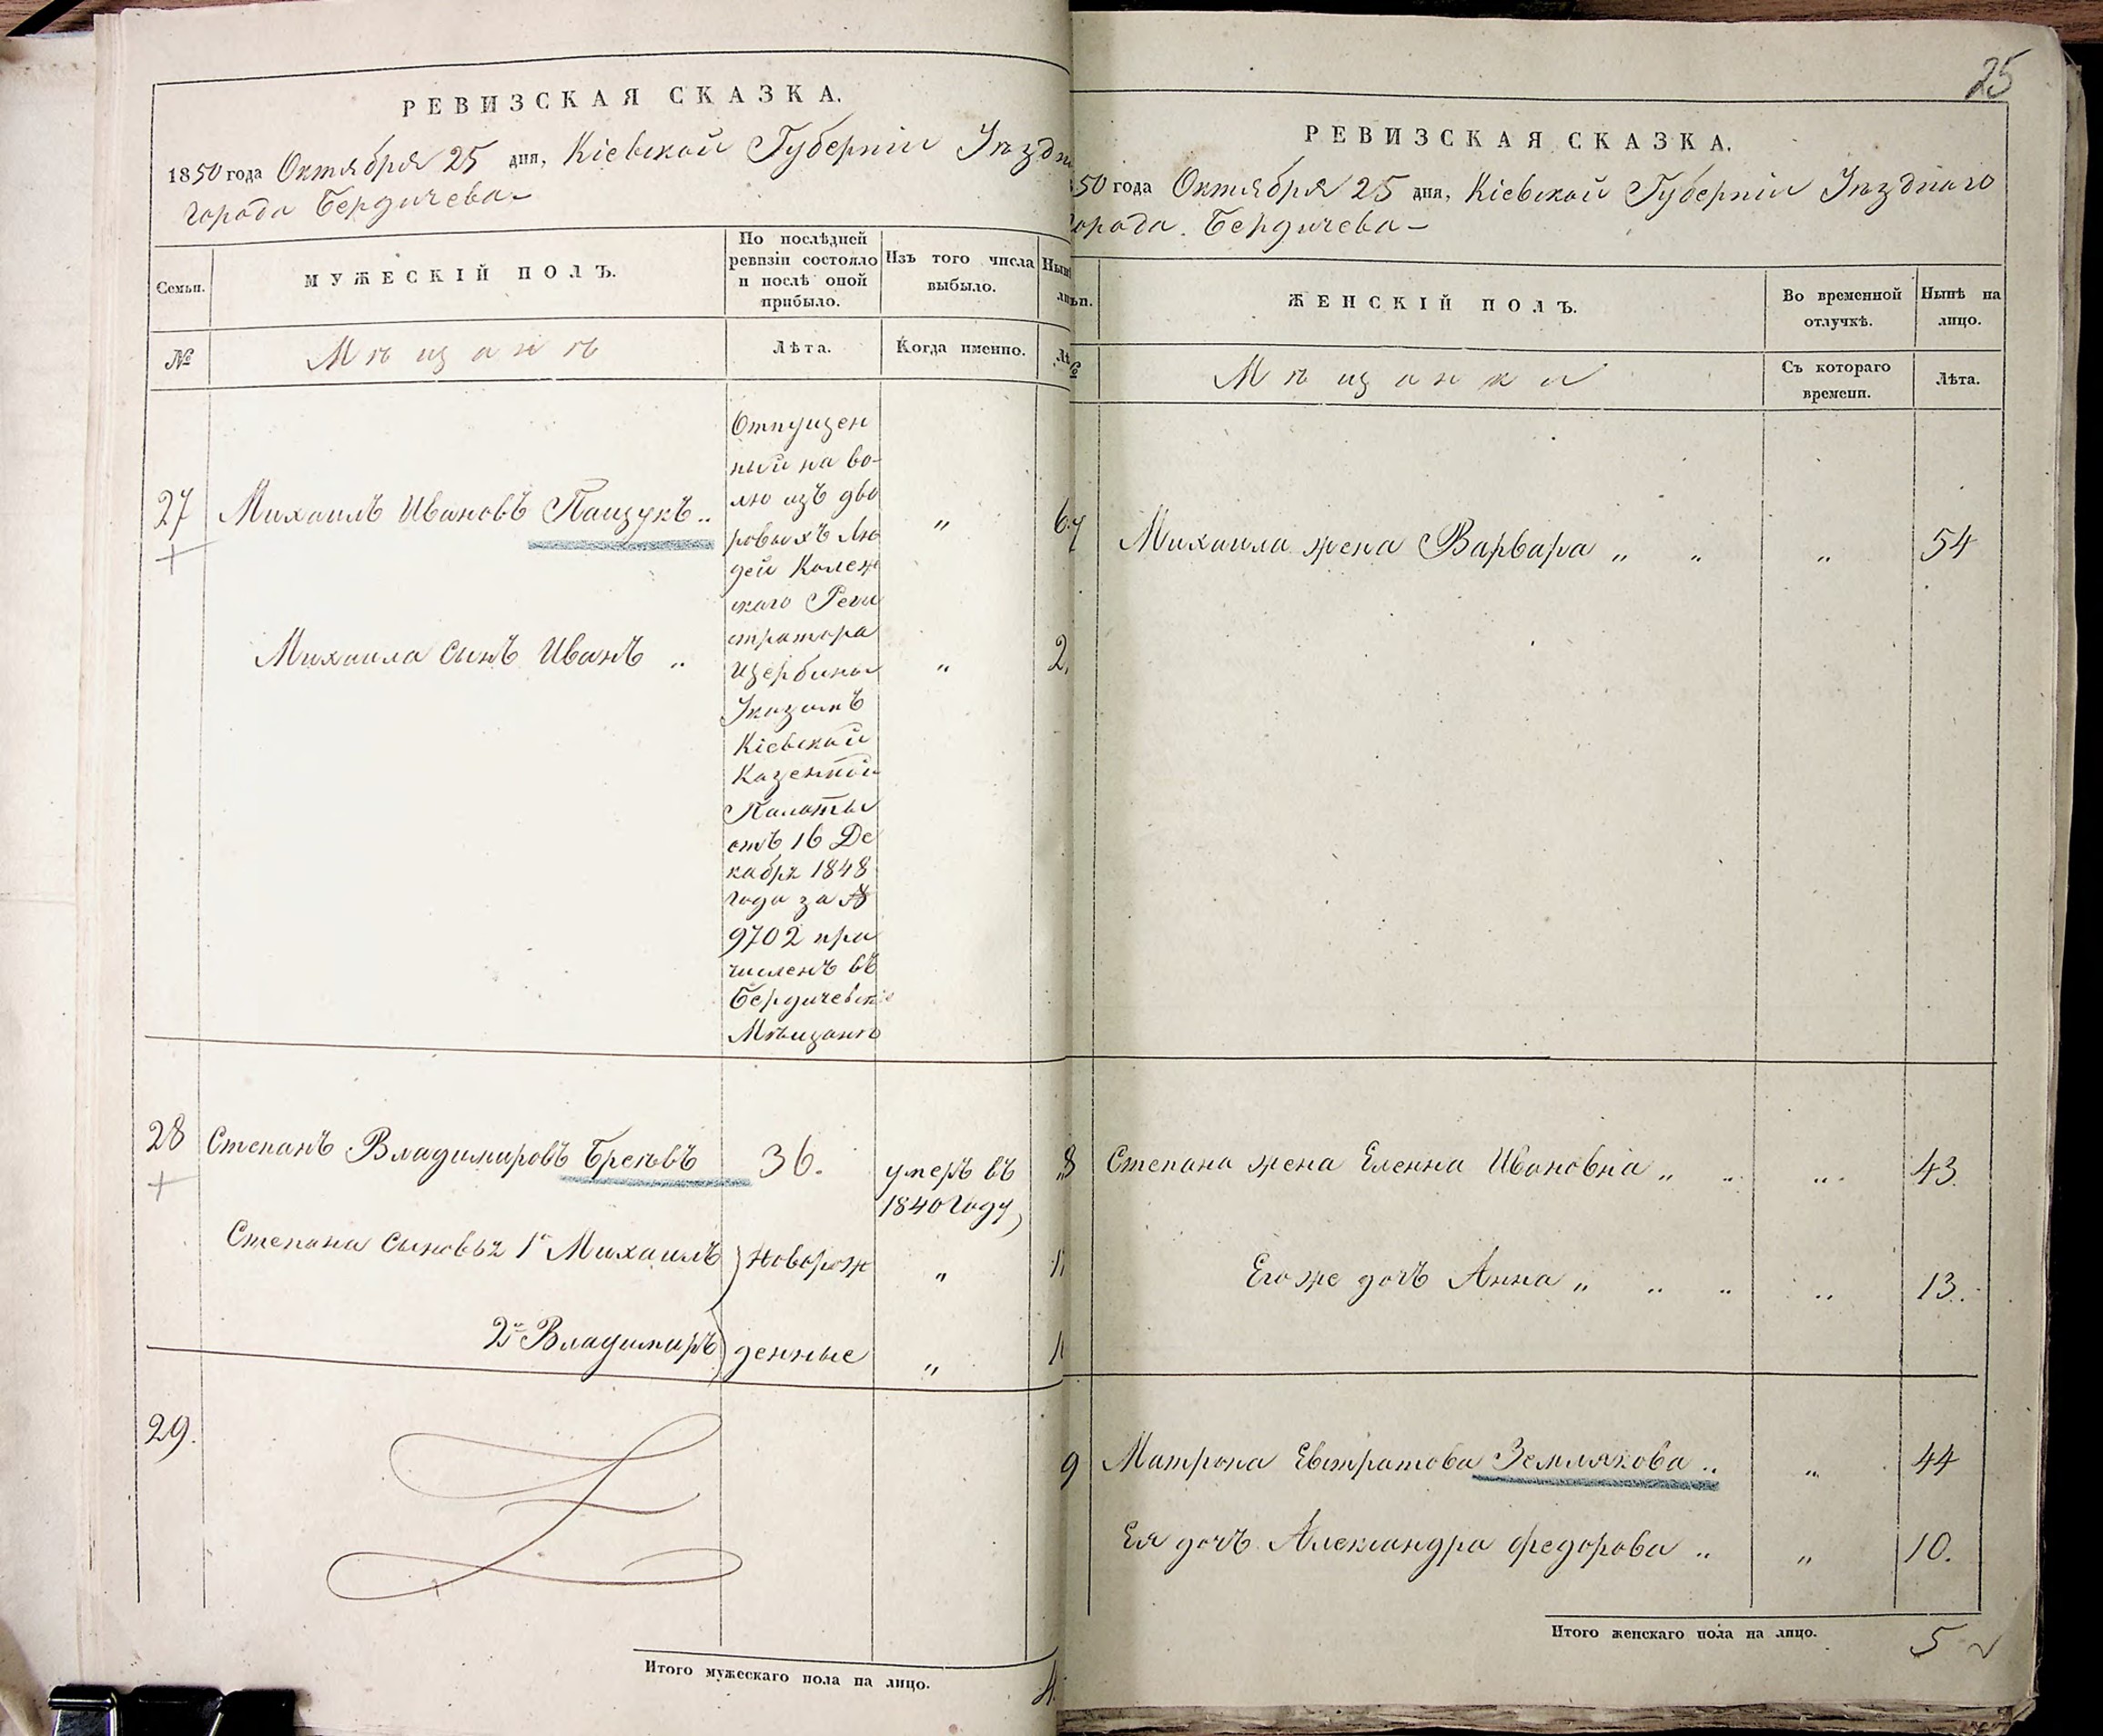 РЕВИЗСКАЯ СКАЗКА.
1850 года Октября 25 дня, Кіевской Губерніи Уѣздн
города Бердичева
Семьи.
МУЖЕСКІЙ ПОЛЪ.
По послѣдней
ревизіи состояло
и послѣ оной
прибыло.
Изъ того числа
выбыло.
№
Мѣщанъ
Лѣта.
Когда именно.
27
Михаилъ Ивановъ Пащукъ „
Отпущен
ный на во-
лю изъ дво
ровыхъ лю
дей Колеж
скаго Реги
стратора
Щербины
Указомъ
Кіевской
Казенной
Палаты
отъ 16 Де
кабря 1848
года за №
9702 при
численъ въ
Бердичевскіе
Мѣщане
„
Михаила сынъ Иванъ „
„
28
Степанъ Владимировъ Бреевъ
36.
умеръ въ
1840 году
Степана сыновья 1й Михаилъ
новорож
„
2й Владимиръ
денные
„
29.
Итого мужескаго пола на лицо.
4.
25
РЕВИЗСКАЯ СКАЗКА.
50 года Октября 25 дня, Кіевской Губерніи Уѣзднаго
города Бердичева
ЖЕНСКІЙ ПОЛЪ.
Во временной
отлучкѣ.
Нынѣ на
лицо.
Мѣщанки
Съ котораго
времени.
Лѣта.
7 Михаила жена Варвара „ „ „ 54
8 Степана жена Еленна Ивановна „ „ „ 43.
Его же дочь Анна „ „ „ „ 13.
9 Матрона Евстратова Землякова „ „ 44
Ея дочь Александра Федорова „ „ 10.
Итого женскаго пола на лицо. 5